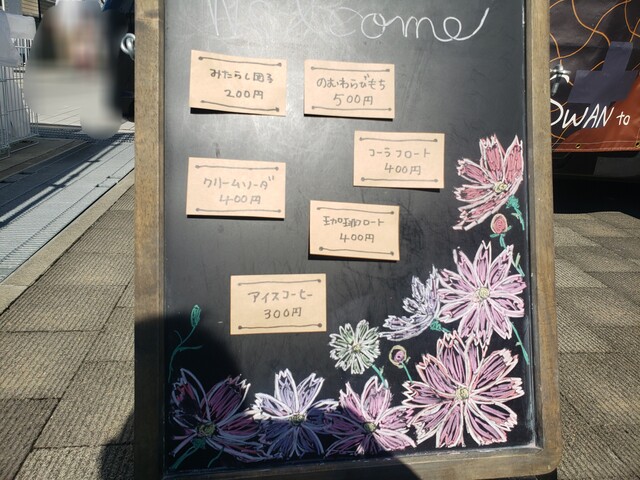 Welcome
みたらし団子
200円
のむわらびもち
500円
コーラフロート
400円
クリームソーダ
400円
珈琲フロート
400円
アイスコーヒー
300円
OWAN to